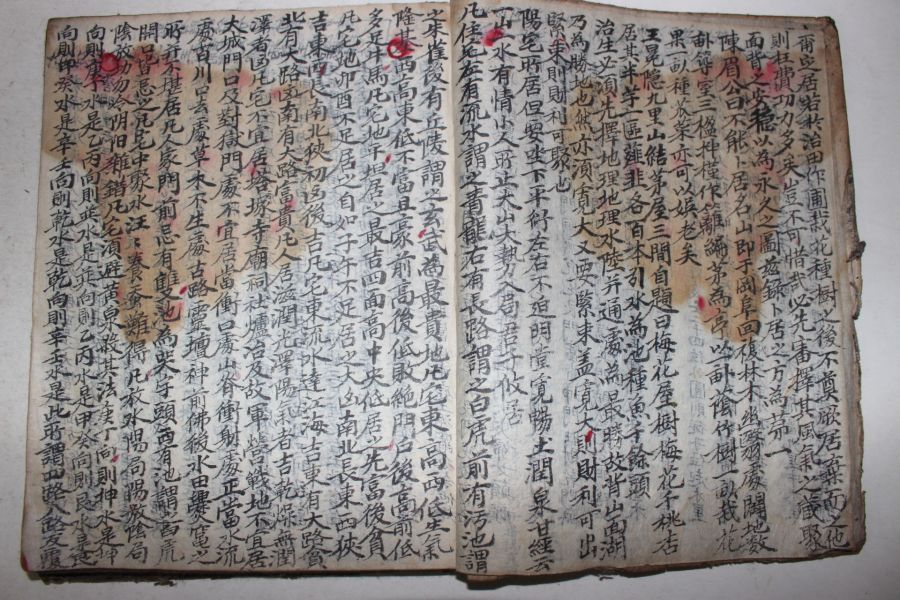 爾卜居若於治田作圃栽花種樹之後不奠厥居棄而之他
則枉費功力多矣豈不可惜哉必先審擇其風氣之藏聚
面背之安穩以爲永久之圖玆錄卜居之方爲第一
陳眉公曰不能卜居名山即於岡阜回複林木幽翳處闢地數
畝築室三楹挿槿作籬編茅爲亭以一畝蔭竹樹一畝栽花
果一畝種瓜菜亦可以娛老矣
王冕隐九里山結茅屋三間自題曰梅花屋樹梅花千桃杏
居其半芋一區薤韭各百本引水爲池種魚千餘頭
治生必須先擇地理地理水陸并通處爲最勝故背山面湖
乃爲勝地也然亦須寬大又要緊束盖寬大則財利可出
緊束則財利可聚也
陽宅所居但要坐下平衍左右不迫明堂寬暢土潤泉甘經云
山水有情小人所止大山大勢入君子攸居
凡住宅左有流水謂之靑龍右有長路謂之白虎前有汚池謂
之朱雀後有丘陵謂之玄武爲最貴地凡宅東高西低生氣
隆基西高東低不富且豪前高後低敗絶門戶後高前低
多足牛馬凡宅地平坦居之最吉四面高中央低居之先富後貧
凡宅卯酉不足居之自如子午不足居之大凶南北長東西狹
吉東西長南北狹初凶後吉凡宅東流水達江海吉東有大路貧
北有大路凶南有大路富貴凡人居滋潤光澤陽氣者吉乾燥無潤
澤者凶凡宅不宜居塔塚寺廟祠社爐冶及故軍營戰地不宜居
大城門口及對獄門處不宜居當衝口處山脊衝射處正當水流
處百川口去處草木不生處古路靈壇神前佛後水田爨竈之
所并不堪居凡人家門前忌有雙池爲哭字頭西有池謂白虎
開口皆忌之凡宅中聚水汪〻養魚難得凡放水陽局陽陰局
陰放切勿陰陽雜錯凡宅須避黃泉煞其法庚丁向則坤水是坤
向則庚丁水是乙丙向則巽水是巽向則乙丙水是甲癸向則艮水是艮
向則甲癸水是辛壬向則乾水是乾向則辛壬水是此所謂四路八路